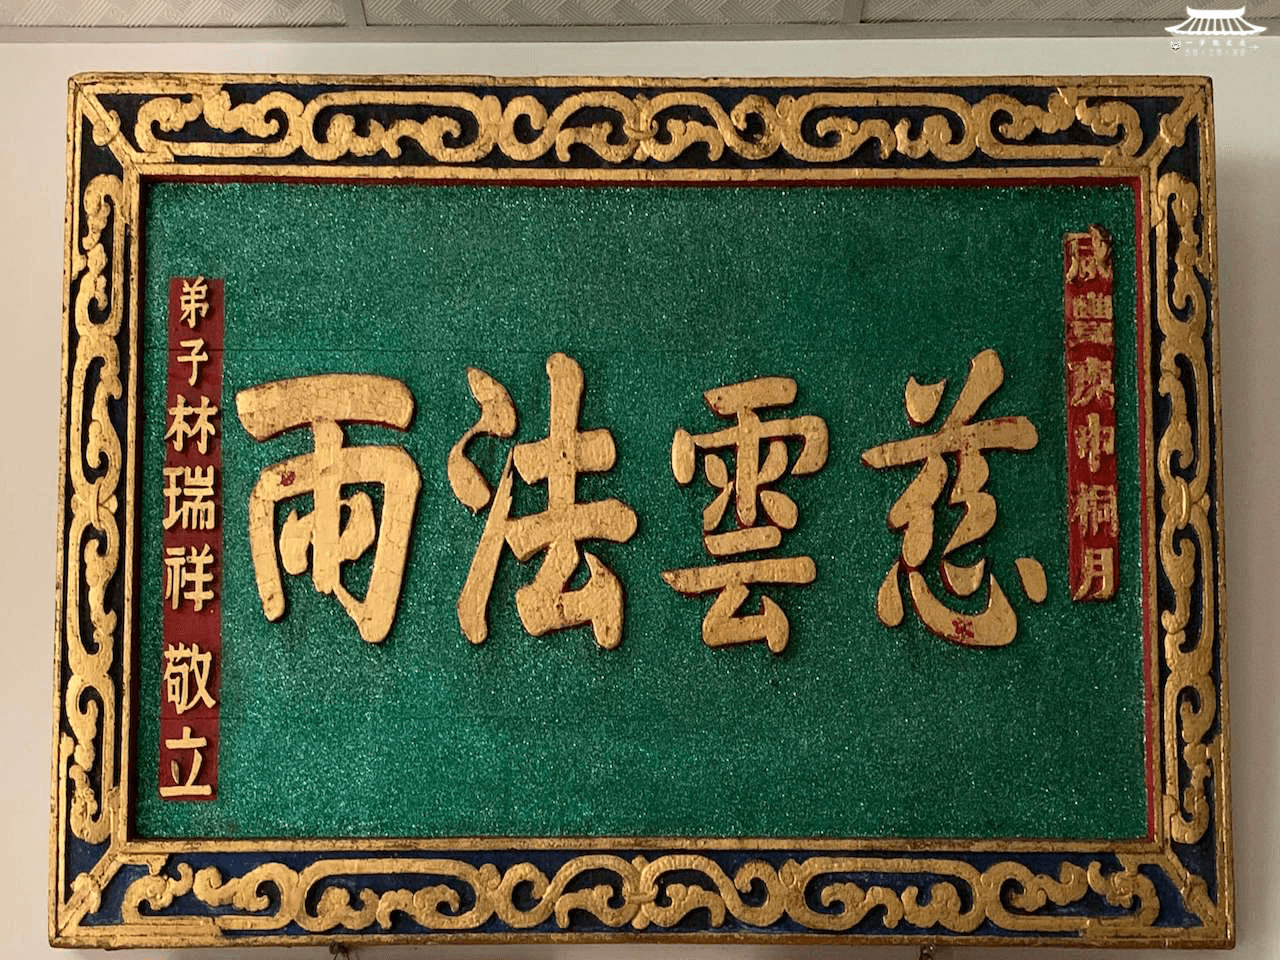 咸豐庚申桐月
慈雲法雨
弟子林瑞祥敬立